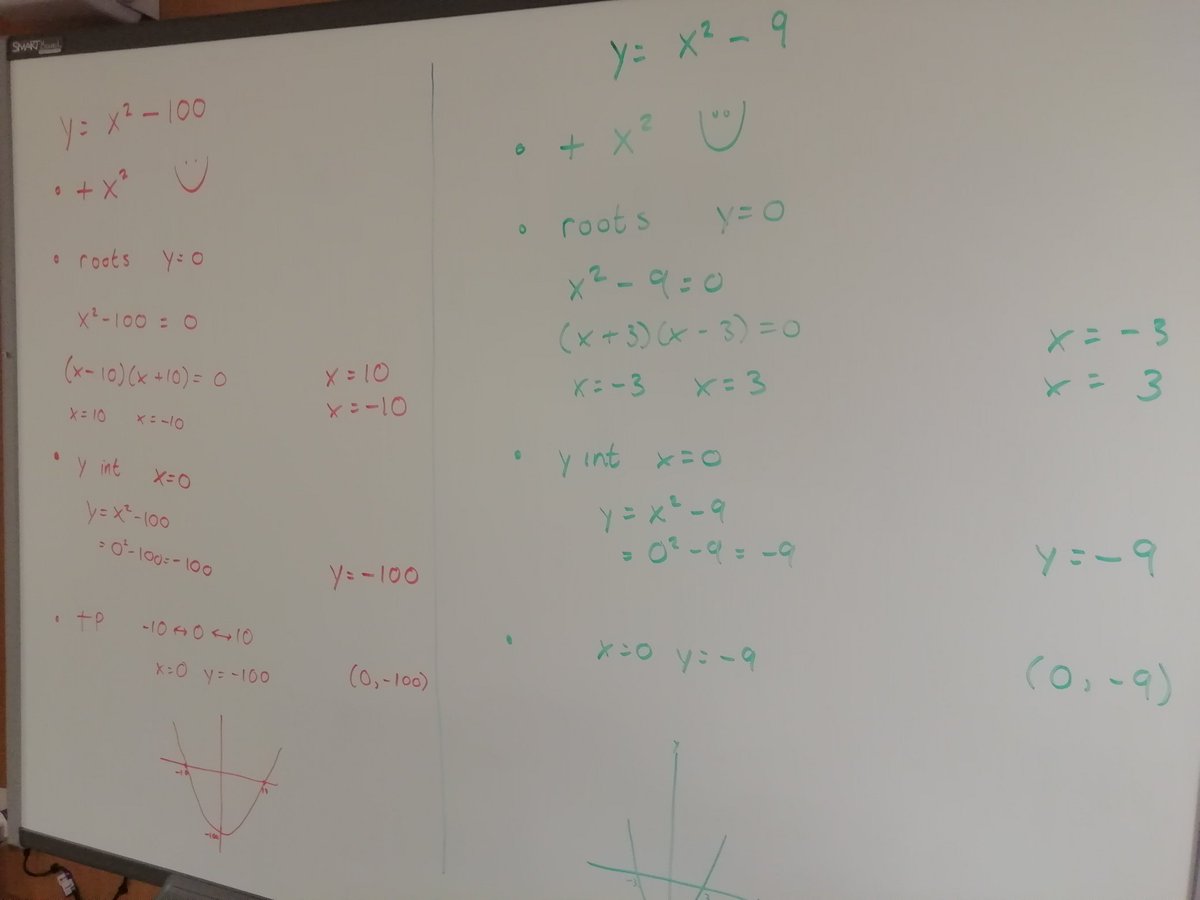 SMART
y= x² - 100
• + x²
• roots y=0
x² - 100 = 0
(x-10)(x+10) = 0
x=10 x=-10
x=10
x=-10
• y int x=0
y=x²-100
= 0²-100=-100
y=-100
• tp -10 ↔ 0 ↔ 10
x=0 y=-100
(0,-100)
-10
10
-100
y= x² - 9
• + x²
• roots y=0
x² - 9 = 0
(x+3)(x-3) = 0
x=-3 x=3
x = -3
x = 3
• y int x=0
y = x² - 9
= 0² - 9 = -9
y = -9
• x=0 y=-9
(0, -9)
y
-3